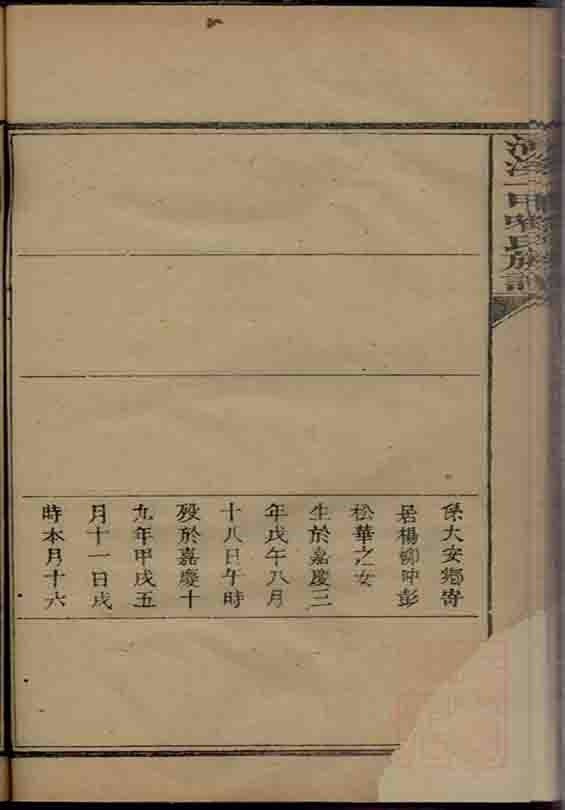 係大安鄉寄
居楊柳冲彭
松華之女
生於嘉慶三
年戊午八月
十八日午時
殁於嘉慶十
九年甲戌五
月十一日戌
時本月十六